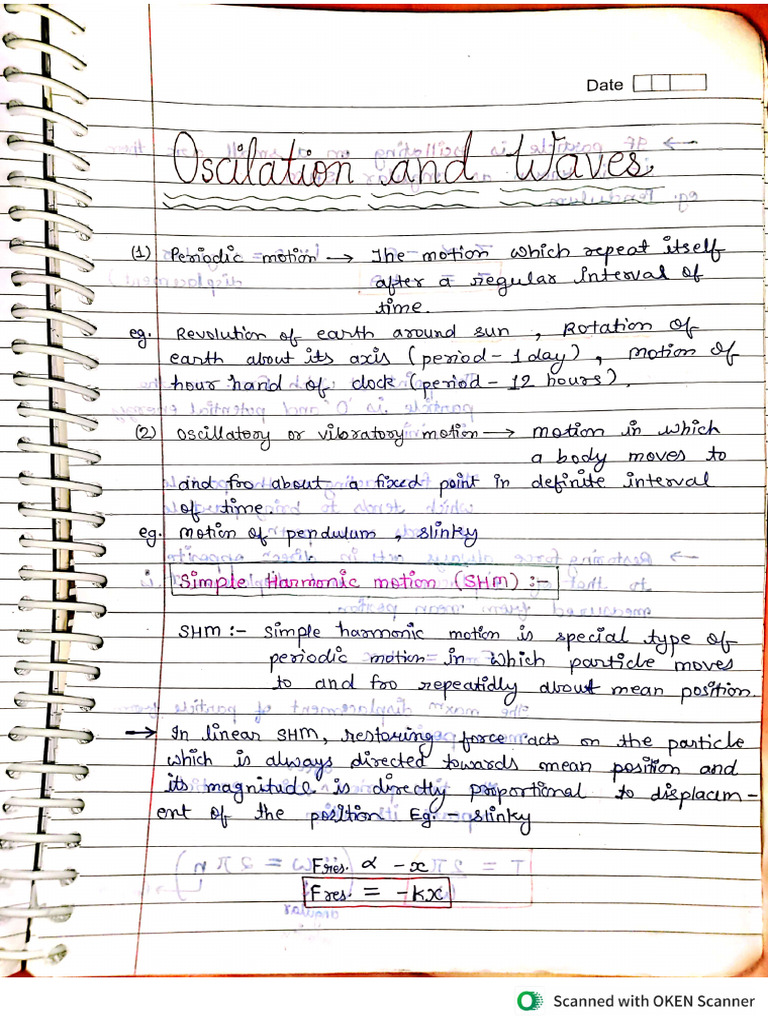 Date
Oscilation and Waves.
(1) Periodic motion → The motion which repeat itself
after a regular interval of
time.
eg. Revolution of earth around sun , Rotation of
earth about its axis (period - 1 day) , motion of
hour hand of clock (period - 12 hours).
(2) Oscillatory or vibratory motion → motion in which
a body moves to
and fro about a fixed point in definite interval
of time.
eg. motion of pendulum , slinky
Simple Harmonic motion (SHM) :-
SHM :- Simple harmonic motion is special type of
periodic motion in which particle moves
to and fro repeatidly about mean position.
→ In linear SHM, restoring force acts on the particle
which is always directed towards mean position and
its magnitude is directly proportional to displacem-
ent of the position Eg:- slinky
Fres. α -x
Fres. = -kx
Scanned with OKEN Scanner